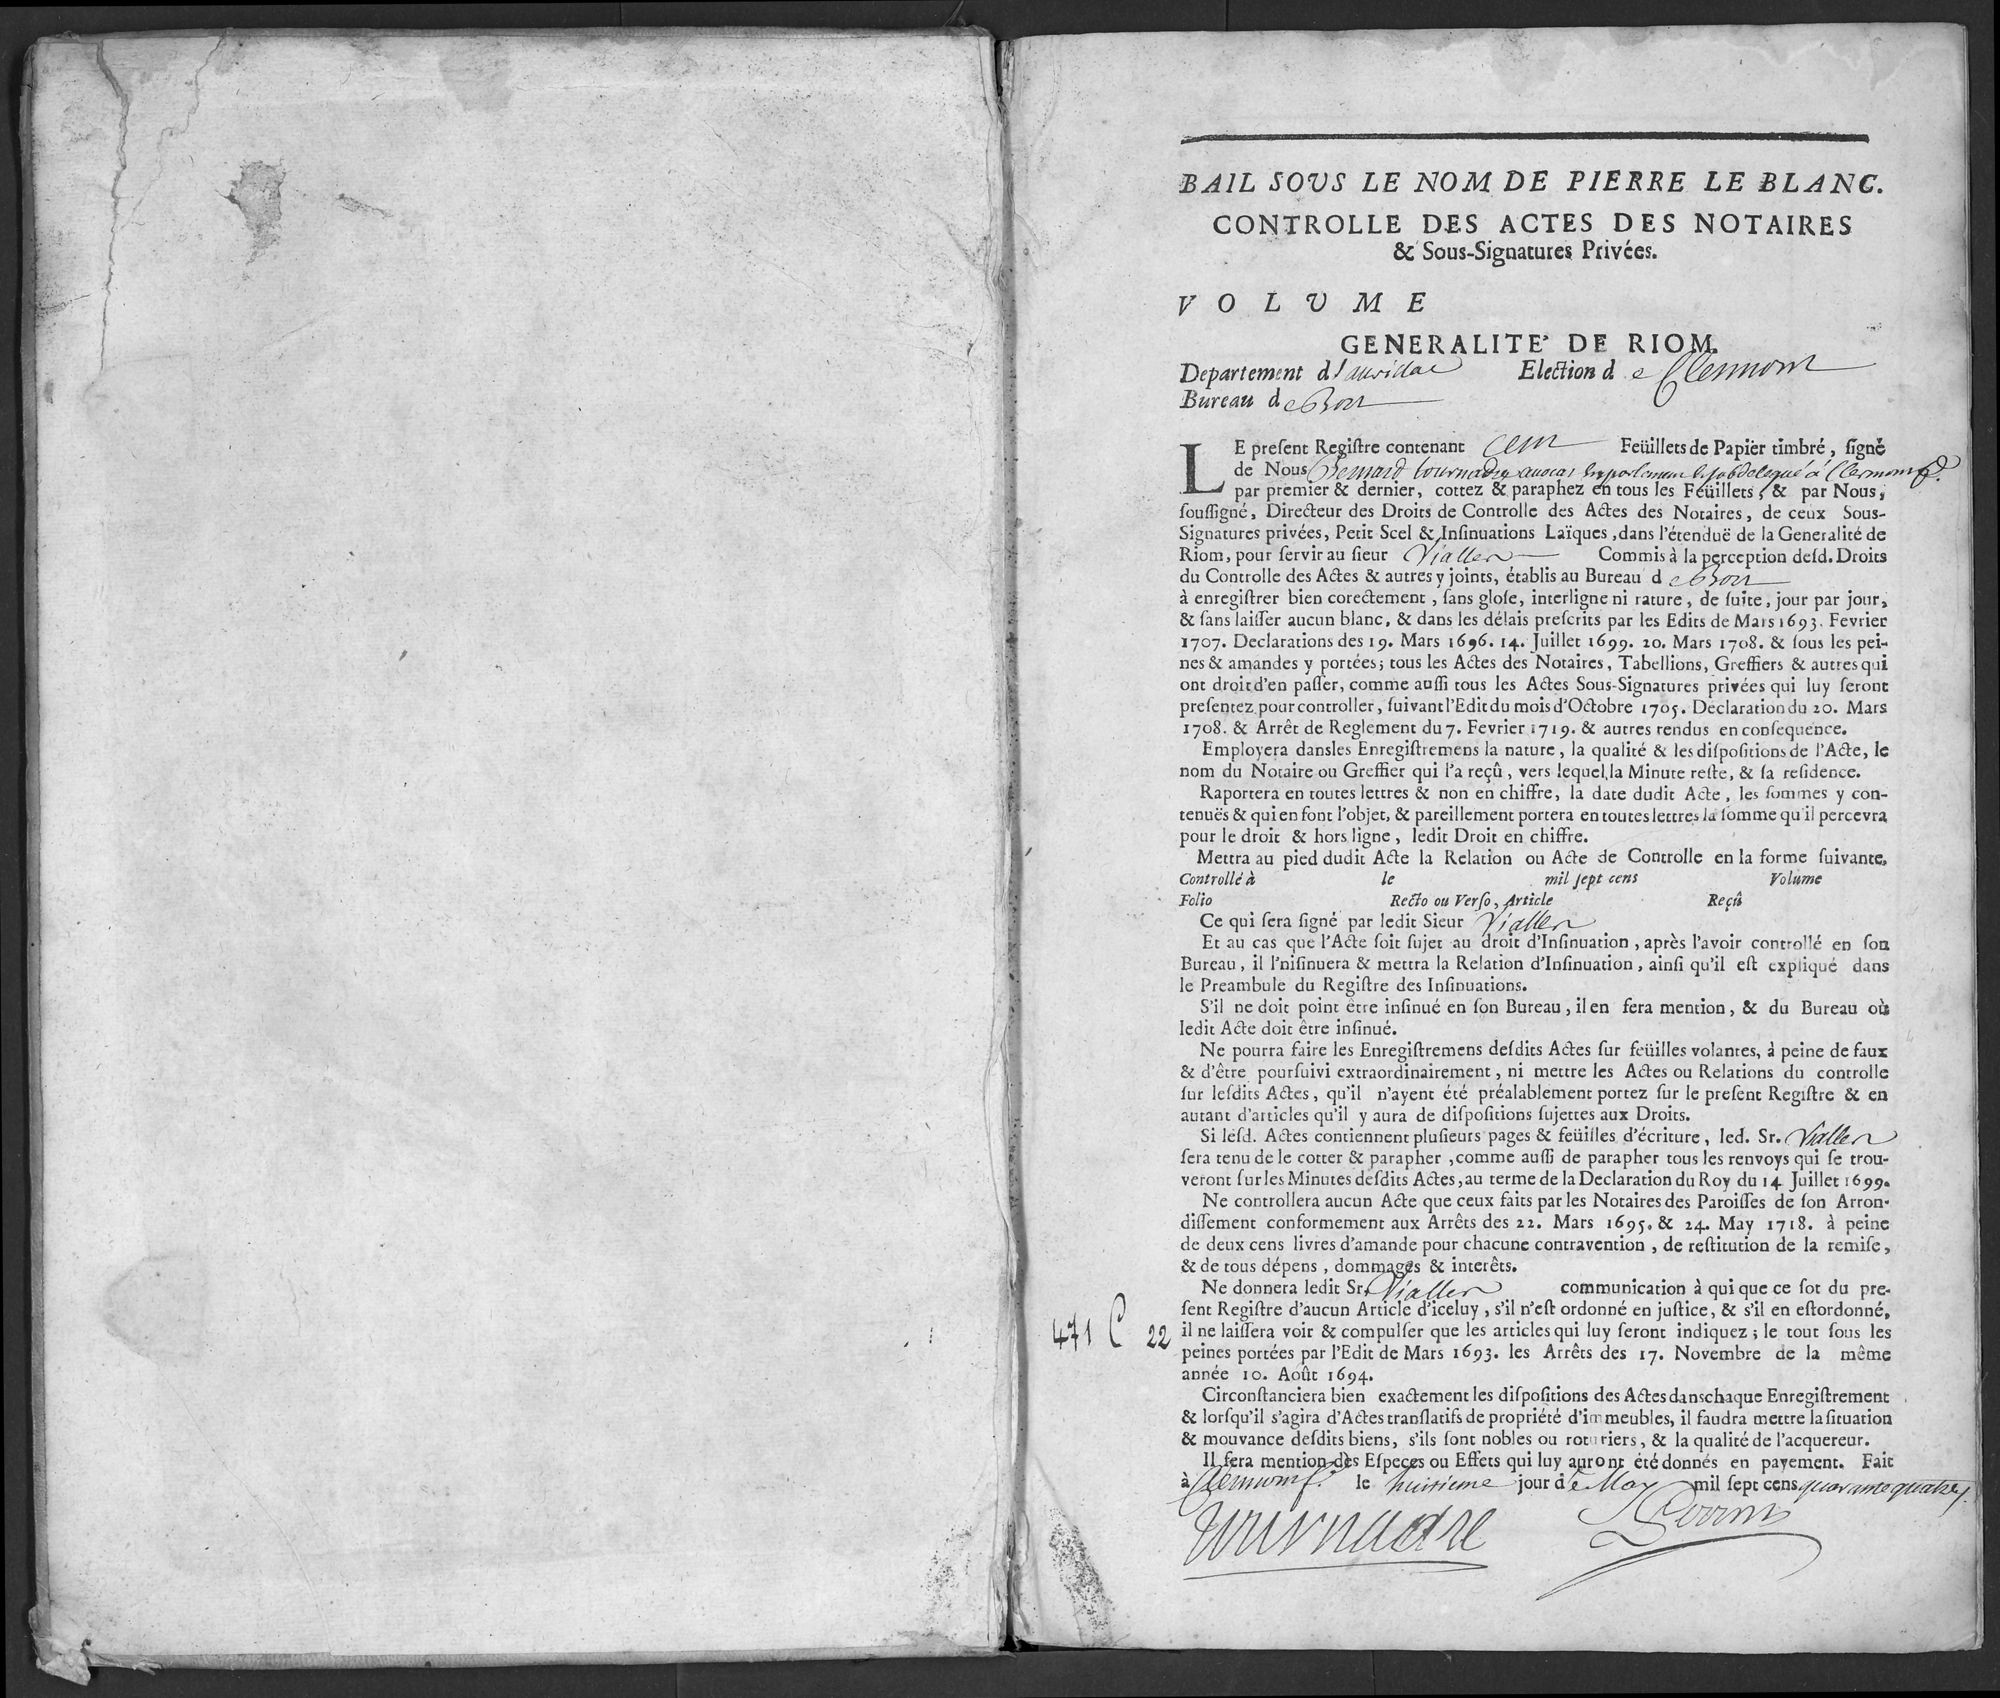 BAIL SOUS LE NOM DE PIERRE LE BLANC.
CONTROLLE DES ACTES DES NOTAIRES
& Sous-Signatures Privées.
VOLUME
GENERALITE' DE RIOM.
Departement d'aurillac Election de Clermont
Bureau de Bort
LE preſent Regiſtre contenant cent Feüillets de Papier timbré, ſigné
de Nous Bernard tournadre avocat en parlement subdelegué á Clermont f.
par premier & dernier, cottez & paraphez en tous les Feüillets, & par Nous,
ſouſſigné, Directeur des Droits de Controlle des Actes des Notaires, de ceux Sous-
Signatures privées, Petit Scel & Inſinuations Laïques, dans l'étenduë de la Generalité de
Riom, pour ſervir au ſieur Vialler Commis à la perception deſd. Droits
du Controlle des Actes & autres y joints, établis au Bureau de Bort
à enregiſtrer bien corectement, ſans gloſe, interligne ni rature, de ſuite, jour par jour,
& ſans laiſſer aucun blanc, & dans les délais preſcrits par les Edits de Mars 1693. Fevrier
1707. Declarations des 19. Mars 1696. 14. Juillet 1699. 20. Mars 1708. & ſous les pei-
nes & amandes y portées; tous les Actes des Notaires, Tabellions, Greffiers & autres qui
ont droit d'en paſſer, comme auſſi tous les Actes Sous-Signatures privées qui luy ſeront
preſentez pour controller, ſuivant l'Edit du mois d'Octobre 1705. Declaration du 20. Mars
1708. & Arrêt de Reglement du 7. Fevrier 1719. & autres rendus en conſequence.
Employera dansles Enregiſtremens la nature, la qualité & les diſpoſitions de l'Acte, le
nom du Notaire ou Greffier qui l'a reçû, vers lequel la Minute reſte, & ſa reſidence.
Raportera en toutes lettres & non en chiffre, la date dudit Acte, les ſommes y con-
tenuës & qui en font l'objet, & pareillement portera en toutes lettres la ſomme qu'il percevra
pour le droit & hors ligne, ledit Droit en chiffre.
Mettra au pied dudit Acte la Relation ou Acte de Controlle en la forme ſuivante.
Controllé à le mil ſept cens Volume
Folio Recto ou Verſo, Article Reçû
Ce qui ſera ſigné par ledit Sieur Vialler
Et au cas que l'Acte ſoit ſujet au droit d'Inſinuation, après l'avoir controllé en ſon
Bureau, il l'niſinuera & mettra la Relation d'Inſinuation, ainſi qu'il eſt expliqué dans
le Preambule du Regiſtre des Inſinuations.
S'il ne doit point être inſinué en ſon Bureau, il en fera mention, & du Bureau où
ledit Acte doit être inſinué.
Ne pourra faire les Enregiſtremens deſdits Actes ſur feüilles volantes, à peine de faux
& d'être pourſuivi extraordinairement, ni mettre les Actes ou Relations du controlle
ſur leſdits Actes, qu'il n'ayent été préalablement portez ſur le preſent Regiſtre & en
autant d'articles qu'il y aura de diſpoſitions ſujettes aux Droits.
Si leſd. Actes contiennent pluſieurs pages & feüilles d'écriture, led. Sr. Vialler
ſera tenu de le cotter & parapher, comme auſſi de parapher tous les renvoys qui ſe trou-
veront ſur les Minutes deſdits Actes, au terme de la Declaration du Roy du 14 Juillet 1699.
Ne controllera aucun Acte que ceux faits par les Notaires des Paroiſſes de ſon Arron-
diſſement conformement aux Arrêts des 22. Mars 1695. & 24. May 1718. à peine
de deux cens livres d'amande pour chacune contravention, de reſtitution de la remiſe,
& de tous dépens, dommages & interêts.
Ne donnera ledit Sr. Vialler communication à qui que ce ſot du pre-
ſent Regiſtre d'aucun Article d'iceluy, s'il n'eſt ordonné en juſtice, & s'il en eſtordonné,
471 C 22 il ne laiſſera voir & compulſer que les articles qui luy ſeront indiquez; le tout ſous les
peines portées par l'Edit de Mars 1693. les Arrêts des 17. Novembre de la même
année 10. Août 1694.
Circonſtanciera bien exactement les diſpoſitions des Actes danschaque Enregiſtrement
& lorſqu'il s'agira d'Actes tranſlatifs de propriété d'immeubles, il faudra mettre la ſituation
& mouvance deſdits biens, s'ils ſont nobles ou roturiers, & la qualité de l'acquereur.
Il fera mention des Eſpeces ou Effets qui luy auront été donnés en payement. Fait
à Clermont f. le huitieme jour de May mil ſept cens quarante quatre
tournadre